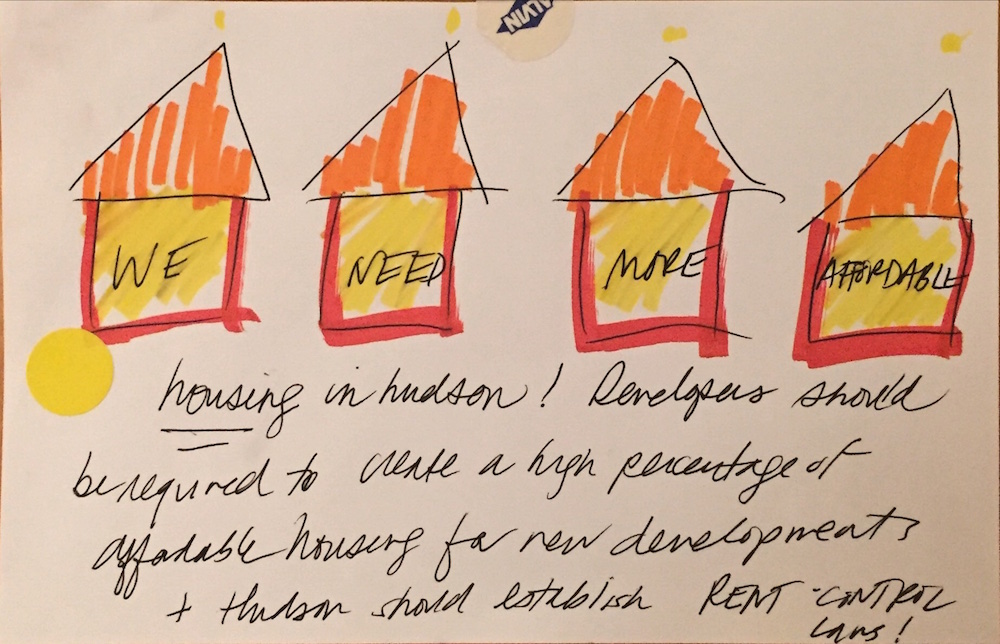 ALVIN
WE NEED MORE AFFORDABLE
housing in hudson! Developers should
be required to create a high percentage of
affordable housing for new developments
+ Hudson should establish RENT-CONTROL
laws!